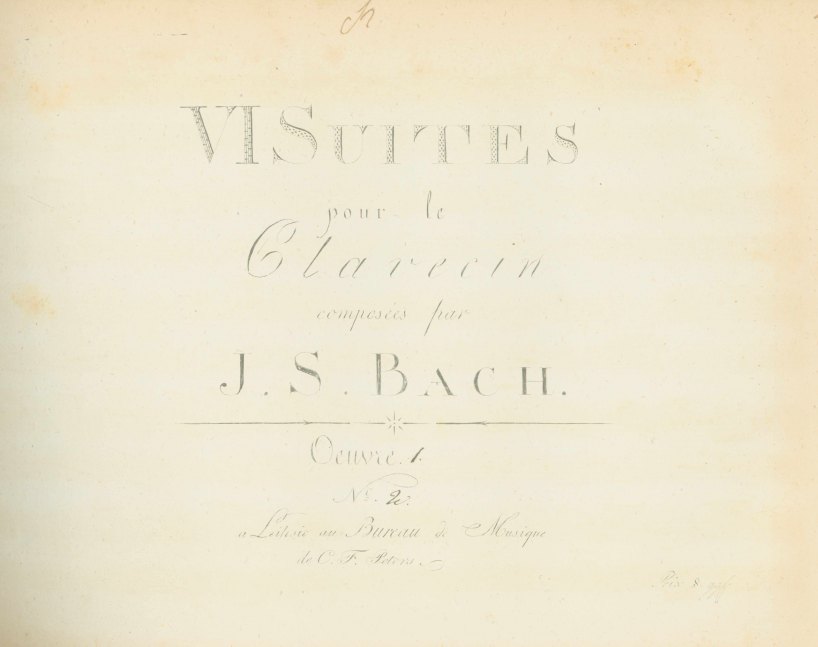 VI SUITES
pour le
Clavecin
composées par
J. S. BACH.
Oeuvre. 1.
No. 2.
a Leipsic au Bureau de Musique
de C. F. Peters.
Prix 8